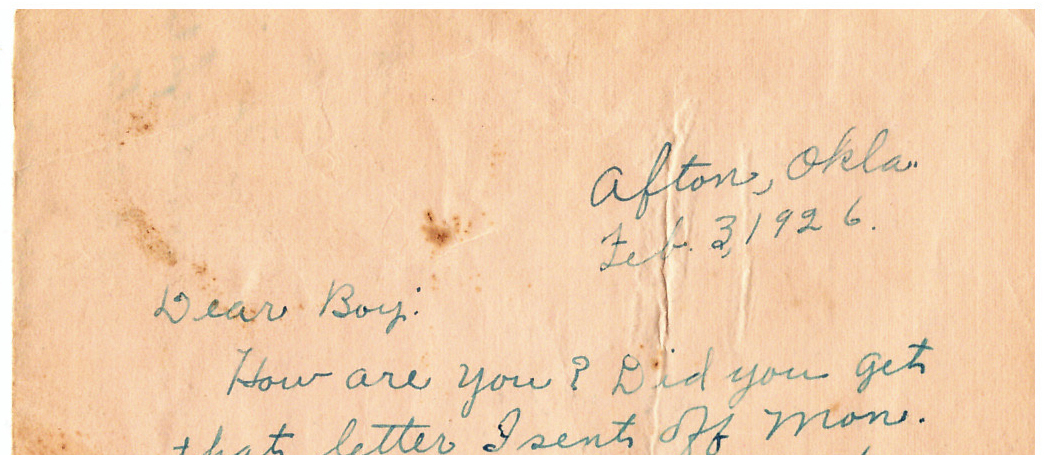 Afton, Okla.
Feb. 3, 1926.
Dear Boy:
How are you? Did you get
that letter I sent off Mon.